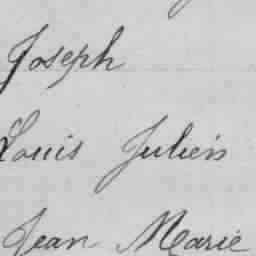 Joseph
Louis Julien
Jean Marie